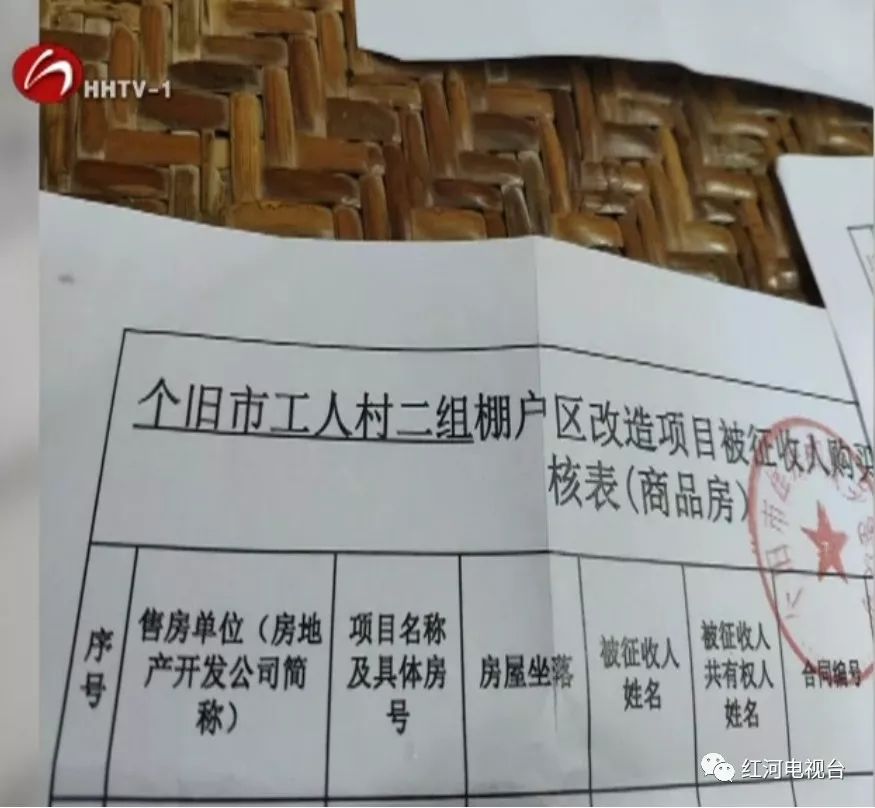 HHTV-1
个旧市工人村二组棚户区改造项目被征收人购买
核表(商品房)
序
号
售房单位（房地
产开发公司简
称）
项目名称
及具体房
号
房屋坐落
被征收人
姓名
被征收人
共有权人
姓名
合同编号
红河电视台